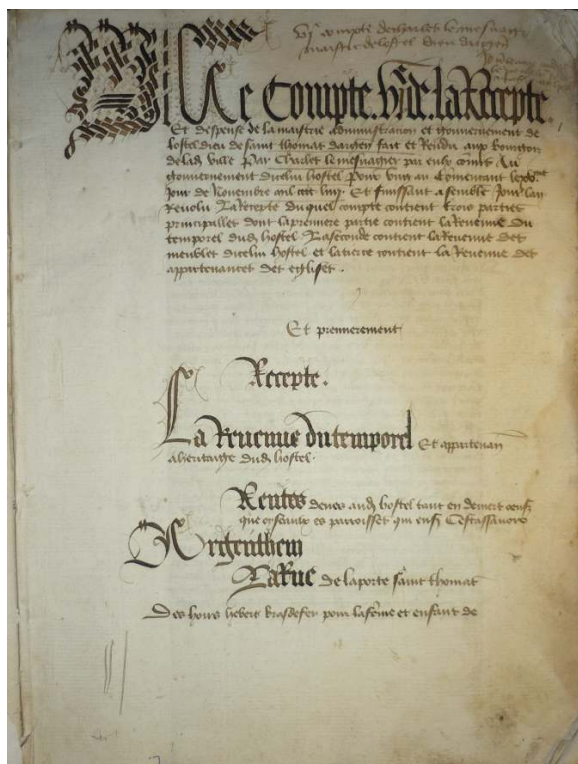 VIe compte de charlot le mesnagier
maistre de lostel dieu dargen
Le Compte .VIe. de la Recepte.
Et despense de la maistrie administracion et gouvernement de
lostel dieu de saint thomas dargen fait et Rendu aux bourgois
de lad ville Par Charlot le mesnagier par eulx commis Au
gouvernement dicelui hostel Pour ung an Comencant le
Jour de Novembre mil cccc liiii. Et finissant a semble Jour lan
Revolu La Recepte du quel compte contient trois parties
principalles dont la premiere partie contient la Revenue du
temporel dud hostel La seconde contient la Revenue des
meubles dicelui hostel et la tierce contient la Revenue des
appartenances des eglises .
Et premierement
Recepte.
La Revenue du temporel Et appartenan
a heritaige dud hostel.
Rentes deues aud hostel tant en deniers
que oyseaulx es parroisses qui ensuivent Cestassavoir
Argenthem
La Rue de la porte saint thomas
Des hoirs hebert brasdefer pour la feme et enfans de